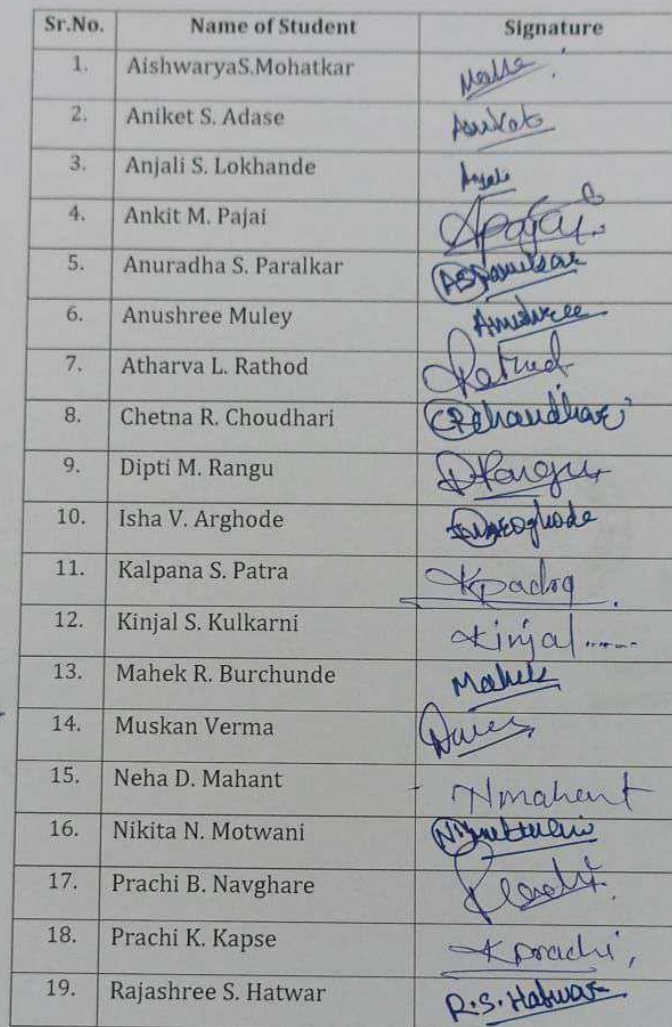 Sr.No. Name of Student Signature
1. AishwaryaS.Mohatkar
2. Aniket S. Adase Aniket
3. Anjali S. Lokhande Anjali
4. Ankit M. Pajai Apajai.
5. Anuradha S. Paralkar
6. Anushree Muley Anushree
7. Atharva L. Rathod Rathod
8. Chetna R. Choudhari CRChaudhari
9. Dipti M. Rangu DRangu
10. Isha V. Arghode
11. Kalpana S. Patra
12. Kinjal S. Kulkarni Kinjal......
13. Mahek R. Burchunde Mahek
14. Muskan Verma
15. Neha D. Mahant Nmahant
16. Nikita N. Motwani
17. Prachi B. Navghare
18. Prachi K. Kapse Kprachi,
19. Rajashree S. Hatwar R.S.Hatwar